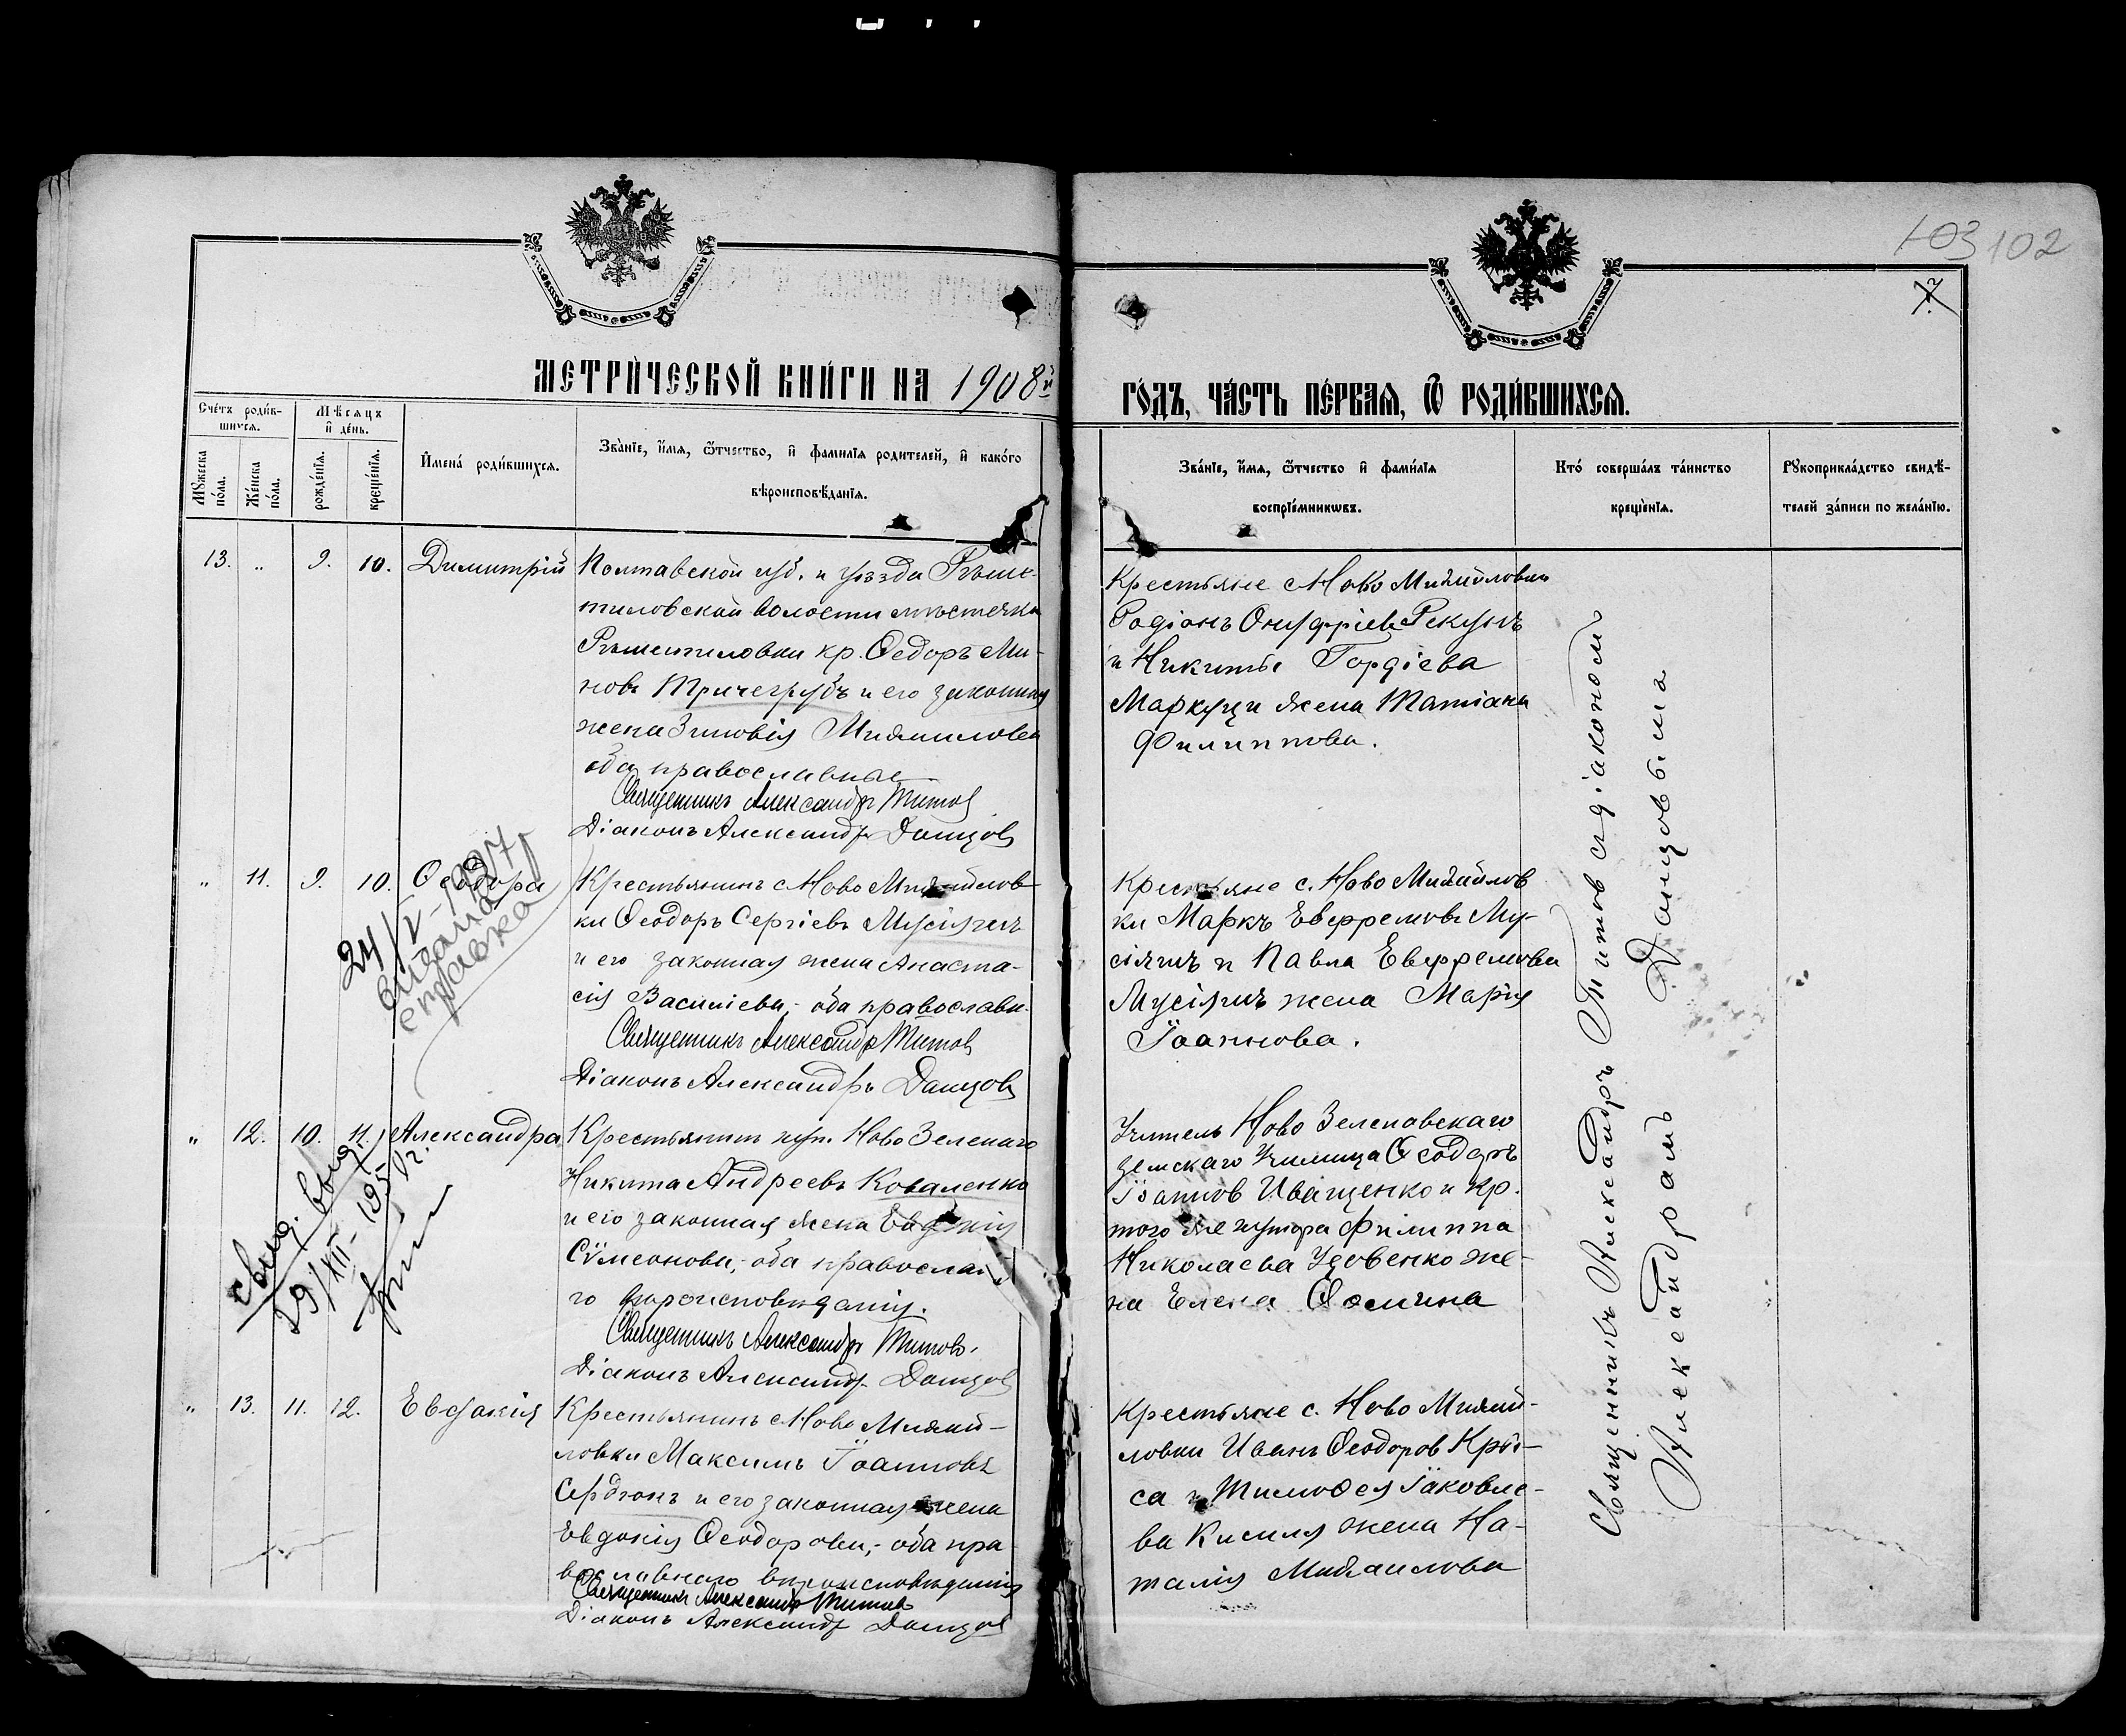 103 102
7.
МЕТРИЧЕСКОЙ КНИГИ НА 1908й
ГОДЪ, ЧАСТЬ ПЕРВАЯ, Ѿ РОДИВШИХСЯ.
Счетъ родив-
шихся.
Мужеска пола.
Женска пола.
Мѣсяцъ и день.
рожденїя.
крещенїя.
Имена родившихся.
Званїе, имя, ѿтчество, и фамилїя родителей, и какого
вѣроисповѣданїя.
Званїе, имя, ѿтчество и фамилїя
воспрїемникωвъ.
Кто совершалъ таинство
крещенїя.
Рукоприкладство свидѣ-
телей записи по желанїю.
13. „ 9. 10. Димитрій
Полтавской губ. и уѣзда Рѣше-
тиловской волости мѣстечка
Рѣшетиловки кр. Ѳедоръ Ми-
новъ Тричегрубъ и его законная
жена Зиновія Михаилова
оба православные
Священникъ Александръ Титовъ
Діаконъ Александръ Данцовъ
Крестьяне с Ново Михайловки
Родіонъ Онуфріевъ Рекунъ
и Никиты Гордіева
Маркуци жена Татіана
Филиппова.
„ 11. 9. 10. Ѳеодора
24/V-1927
выдана
справка
Крестьянинъ с Ново Михайлов-
ки Ѳеодоръ Сергіевъ Мусіячъ
и его законная жена Анаста-
сія Василіева,- оба православн.
Священникъ Александръ Титовъ
Діаконъ Александръ Данцовъ
Крестьяне с. Ново Михайлов
ки Маркъ Евфремовъ Му-
сіячъ и Павла Евфремова
Мусіячъ жена Марія
Іоаннова.
„ 12. 10. 11. Александра
свид. выд.
29/XII-195
Крестьянинъ хут. Ново Зеленаго
Никита Андреевъ Коваленко
и его законная жена Евдокія
Сѵмеонова,- оба православна
го вѣроисповѣданія.
Священникъ Александръ Титовъ.
Діаконъ Александръ Данцовъ
Учитель Ново Зеленовскаго
земскаго Училища Ѳеодоръ
Іоанновъ Иващенко и кр.
того же хутора Филиппа
Николаева Удовенко же-
на Елена Ѳомина
„ 13. 11. 12. Евдокія
Крестьянинъ с Ново Михай-
ловки Максимъ Іоанновъ
Сердюкъ и его законная жена
Евдокія Ѳеодорова,- оба пра
вославнаго вѣроисповѣданія
Священникъ Александръ Титовъ
Діаконъ Александръ Данцовъ
Крестьяне с. Ново Михай-
ловки Иванъ Ѳеодоровъ Кры-
са и Тимоѳея Іаковле-
ва Кисиля жена На-
талія Михаилова
Священникъ Александръ Титов съ діакономъ
Александромъ Данцовымъ